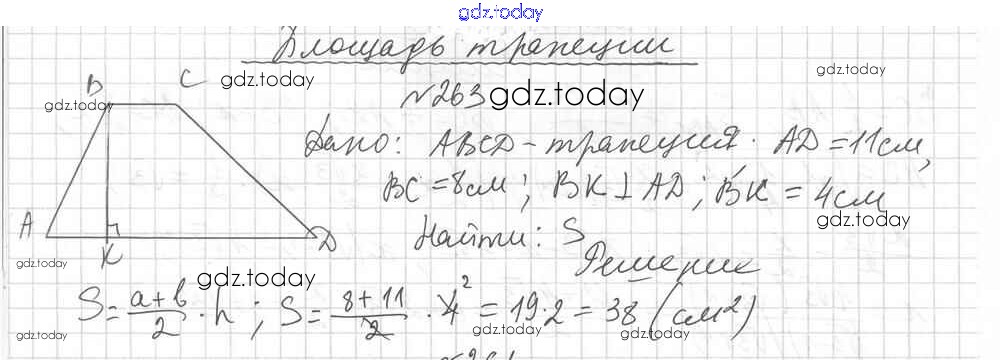 gdz.today
Площадь трапеции
gdz.today
B C
gdz.today
gdz.today
№263 gdz.today
Дано: ABCD - трапеция. AD = 11 см,
BC = 8 см; BK ⊥ AD; BK = 4 см
gdz.today
A K D
Найти: S
gdz.today
gdz.today
Решение
S = (a + b)/2 · h; S = (8 + 11)/2 · 4² = 19·2 = 38 (см²)
gdz.today
gdz.today
gdz.today